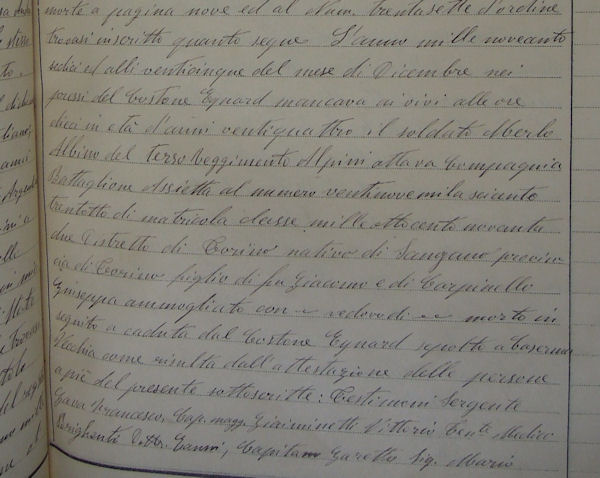 morte a pagina nove ed al Num. trentasette d'ordine
trovasi inscritto quanto segue L'anno mille novecento
sedici ed alli venticinque del mese di Dicembre nei
pressi del Costone Eynard mancava ai vivi alle ore
dieci in età d'anni ventiquattro il soldato Merlo
Albino del terzo Reggimento Alpini ottava Compagnia
Battaglione Assietta al numero ventinovemila seicento
trentotto di matricola classe mille ottocento novanta
due Distretto di Torino nativo di Sangano provin
cia di Torino figlio di fu Giacomo e di Carpinello
Giuseppa ammogliato con - vedovo di - morto in
seguito a caduta dal Costone Eynard sepolto a Caserma
Vecchia come risulta dall'attestazione delle persone
a piè del presente sottoscritte: Testimoni Sergente
Francesco, Cap. magg. Vittorio Ten. Medico
Brighenti Dott. Capitano Garetto Sig. Mario